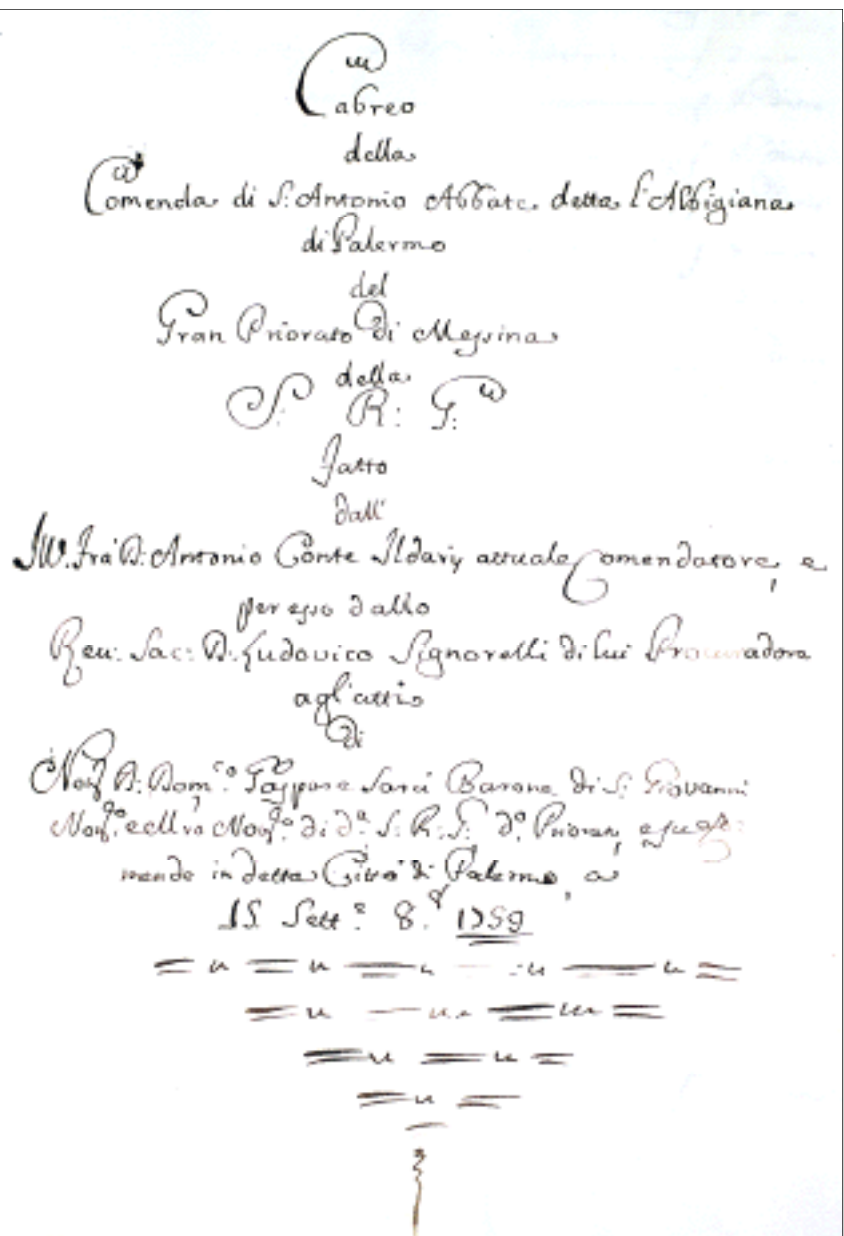 Cabreo
della
Comenda di S. Antonio Abbate detta l'Albigiana
di Palermo
del
Gran Priorato di Messina
della
S: R: G:
fatto
dall'
Ill. Frà D: Antonio Conte attuale Comendatore, e
per esso dallo
Reu: Sac: D: Ludovico Signorelli di lui Procuradore
agl'atti
di
D: Dom.co Gaspare Sarci Barone di S: Giovanni
di d.a S: R: G: d.o Priorat,
in detta Città di Palermo, a
15 Sett.e 8.a 1759